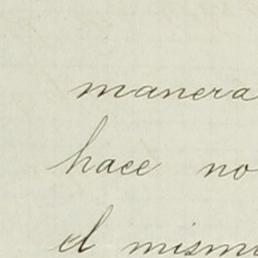 manera
hace no
el mism